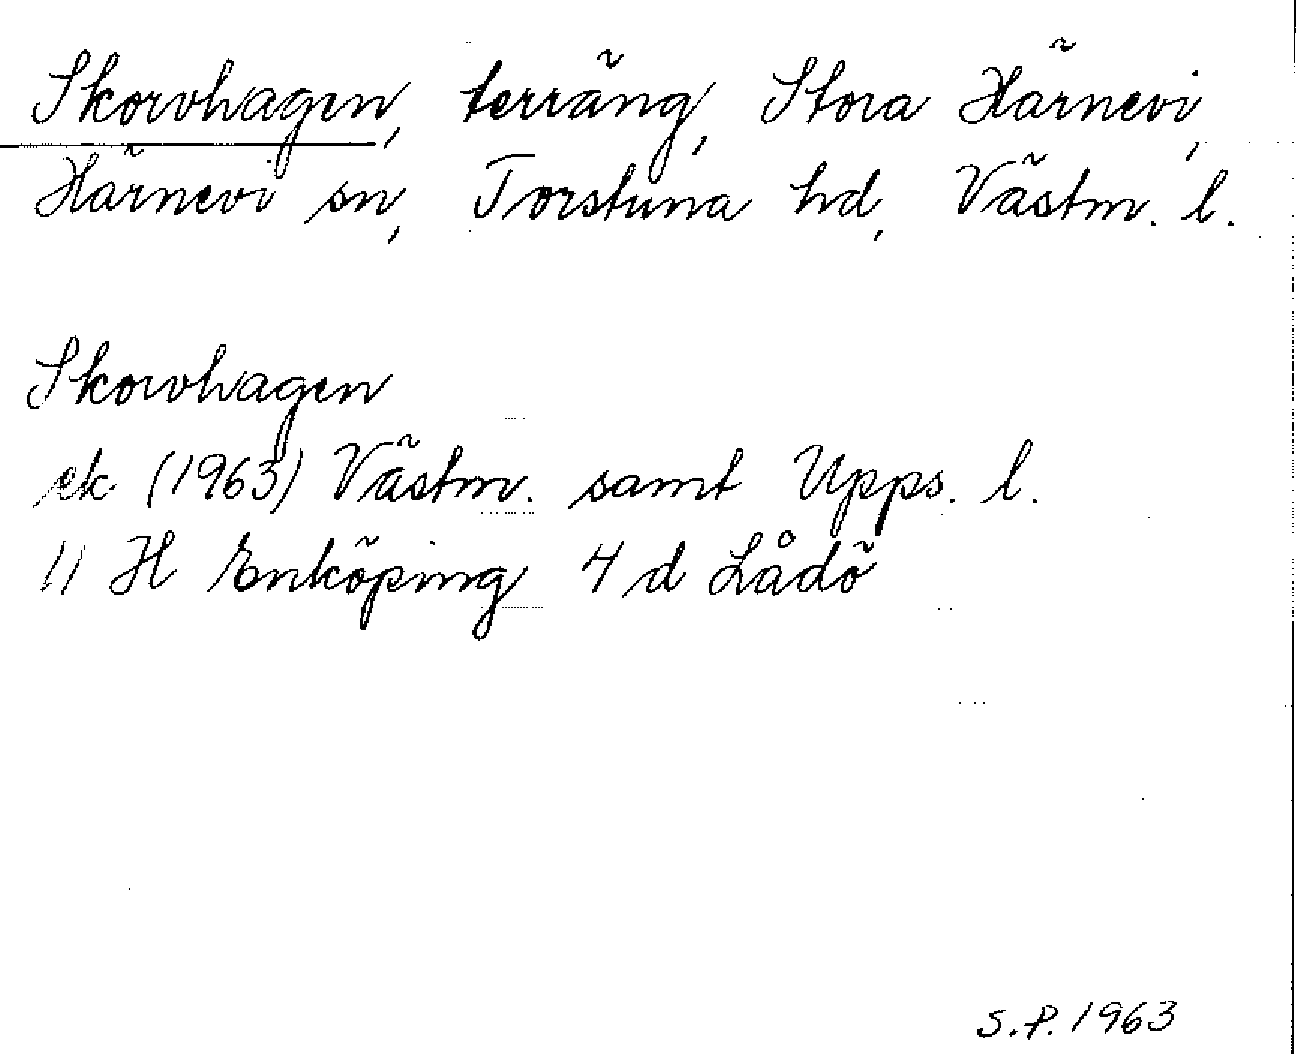 Skorvhagen, terräng, Stora Härnevi,
Härnevi sn, Torstuna hd, Västm. l.
Skorvhagen
ek (1963) Västm. samt Upps. l.
11 H Enköping 4 d Lådö
S.P. 1963